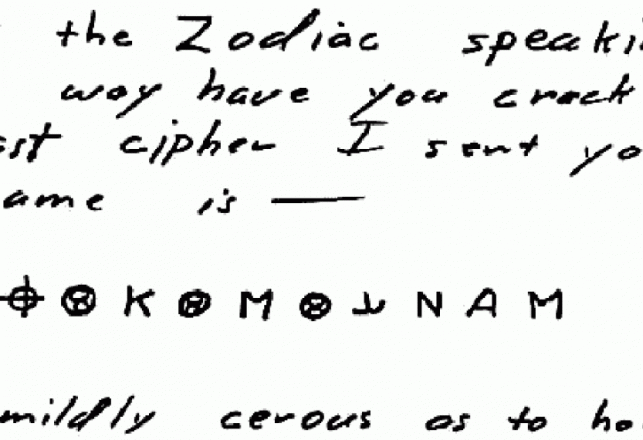 the Zodiac speaki
way have you crack
ast cipher I sent yo
ame is ——
⌖ ⊗ K ⊗ M ⊗ ⅄ N A M
mildly cerous as to ho